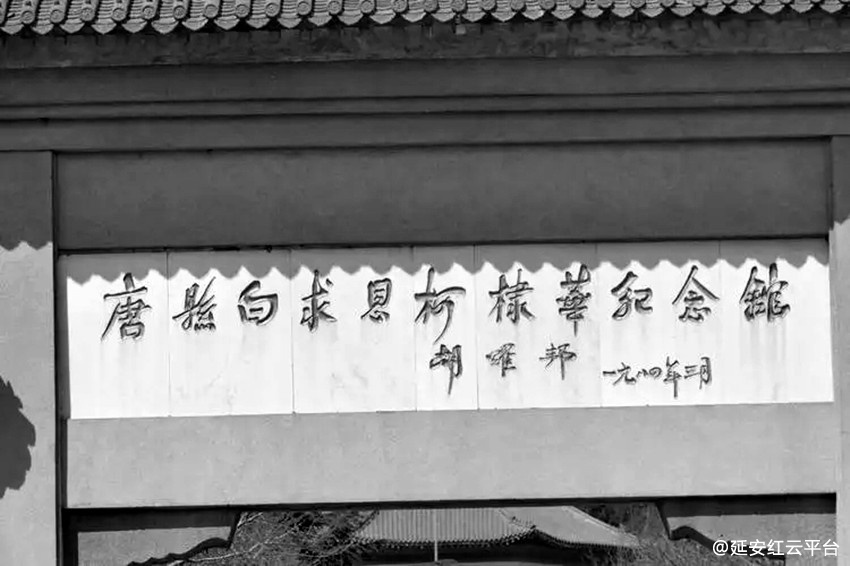 唐縣白求恩柯棣華紀念館
胡耀邦
一九八四年三月
@延安红云平台